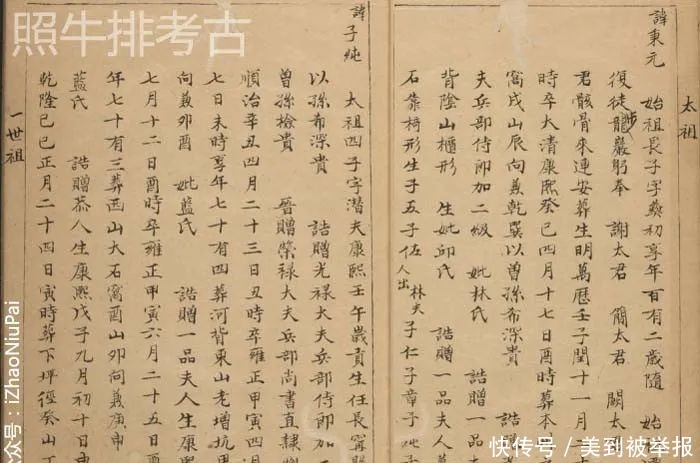 照牛排考古
太祖
諱東元 始祖長子字義初享年百有二歲隨 始
復徒龍巖躬奉 謝太君 簡太君 闕太
君骸骨來連安葬生明萬歷壬子閏十一月二十
時卒大清康熙癸巳四月十七日酉時葬本
窩戌山辰向兼乾巽以曾孫布深貴 誥
夫兵部侍郎加二級 妣林氏 誥贈一品
背陰山櫃形 生妣邱氏 誥贈一品夫人
石靠椅形生子五子佐人出林夫子仁子章子純子
諱子純 太祖四子字潛夫康熙壬午歲貢生任長寧
以孫布深貴 誥贈光祿大夫兵部侍郎加二
曾孫檢貴 晉贈榮祿大夫兵部尚書直隸
順治辛丑四月二十三日丑時卒雍正甲寅四
七日未時享年七十有四葬河背東山老增坑
向兼卯酉 妣藍氏 誥贈一品夫人生康
七月十二日酉時卒雍正甲寅六月二十五日
年七十有三葬西山大石窩酉山卯向兼庚申
藍氏 誥贈恭人生康熙戊子九月初十日申
乾隆己巳正月二十四日寅時葬下坪徑癸山丁
一世祖
众号：iZhaoNiuPai
快传号／美到被举报